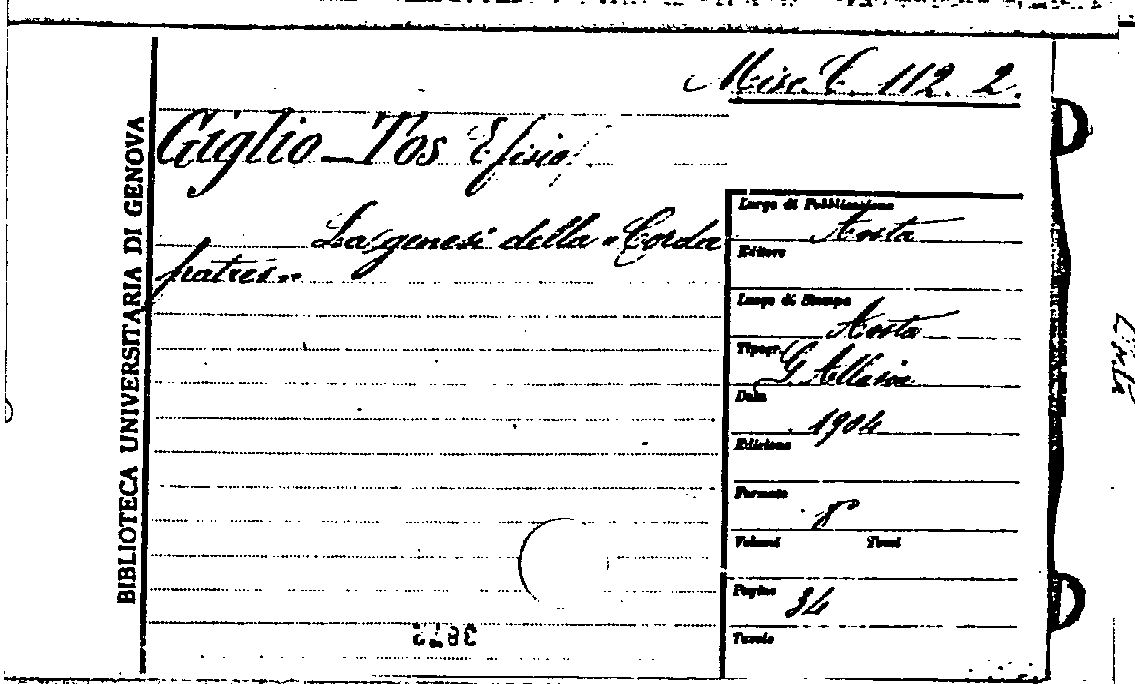 Misc. C. 112. 2.
BIBLIOTECA UNIVERSITARIA DI GENOVA
Giglio-Tos Efisio
La genesi della "Corda
fratres"
Luogo di Pubblicazione
Aosta
Editore
Luogo di Stampa
Aosta
Tipogr.
G. Allasia
Data
1904
Edizione
Formato
8°
Volumi Tomi
Pagine
34
Tavole